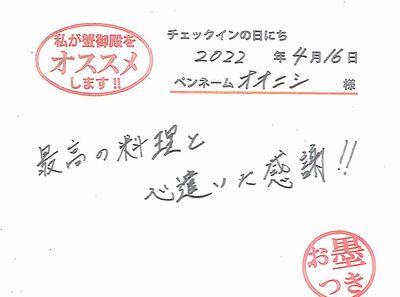 私が蟹御殿を
オススメ
します!!
チェックインの日にち
2022 年 4月 16日
ペンネーム オオニシ 様
最高の料理と
心遣いに感謝!!
お墨
つき